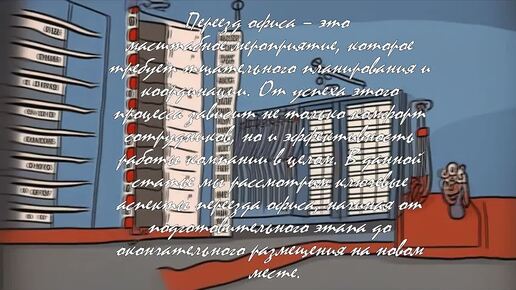 Переезд офиса – это
масштабное мероприятие, которое
требует тщательного планирования и
координации. От успеха этого
процесса зависит не только комфорт
сотрудников, но и эффективность
работы компании в целом. В данной
статье мы рассмотрим ключевые
аспекты переезда офиса, начиная от
подготовительного этапа до
окончательного размещения на новом
месте.